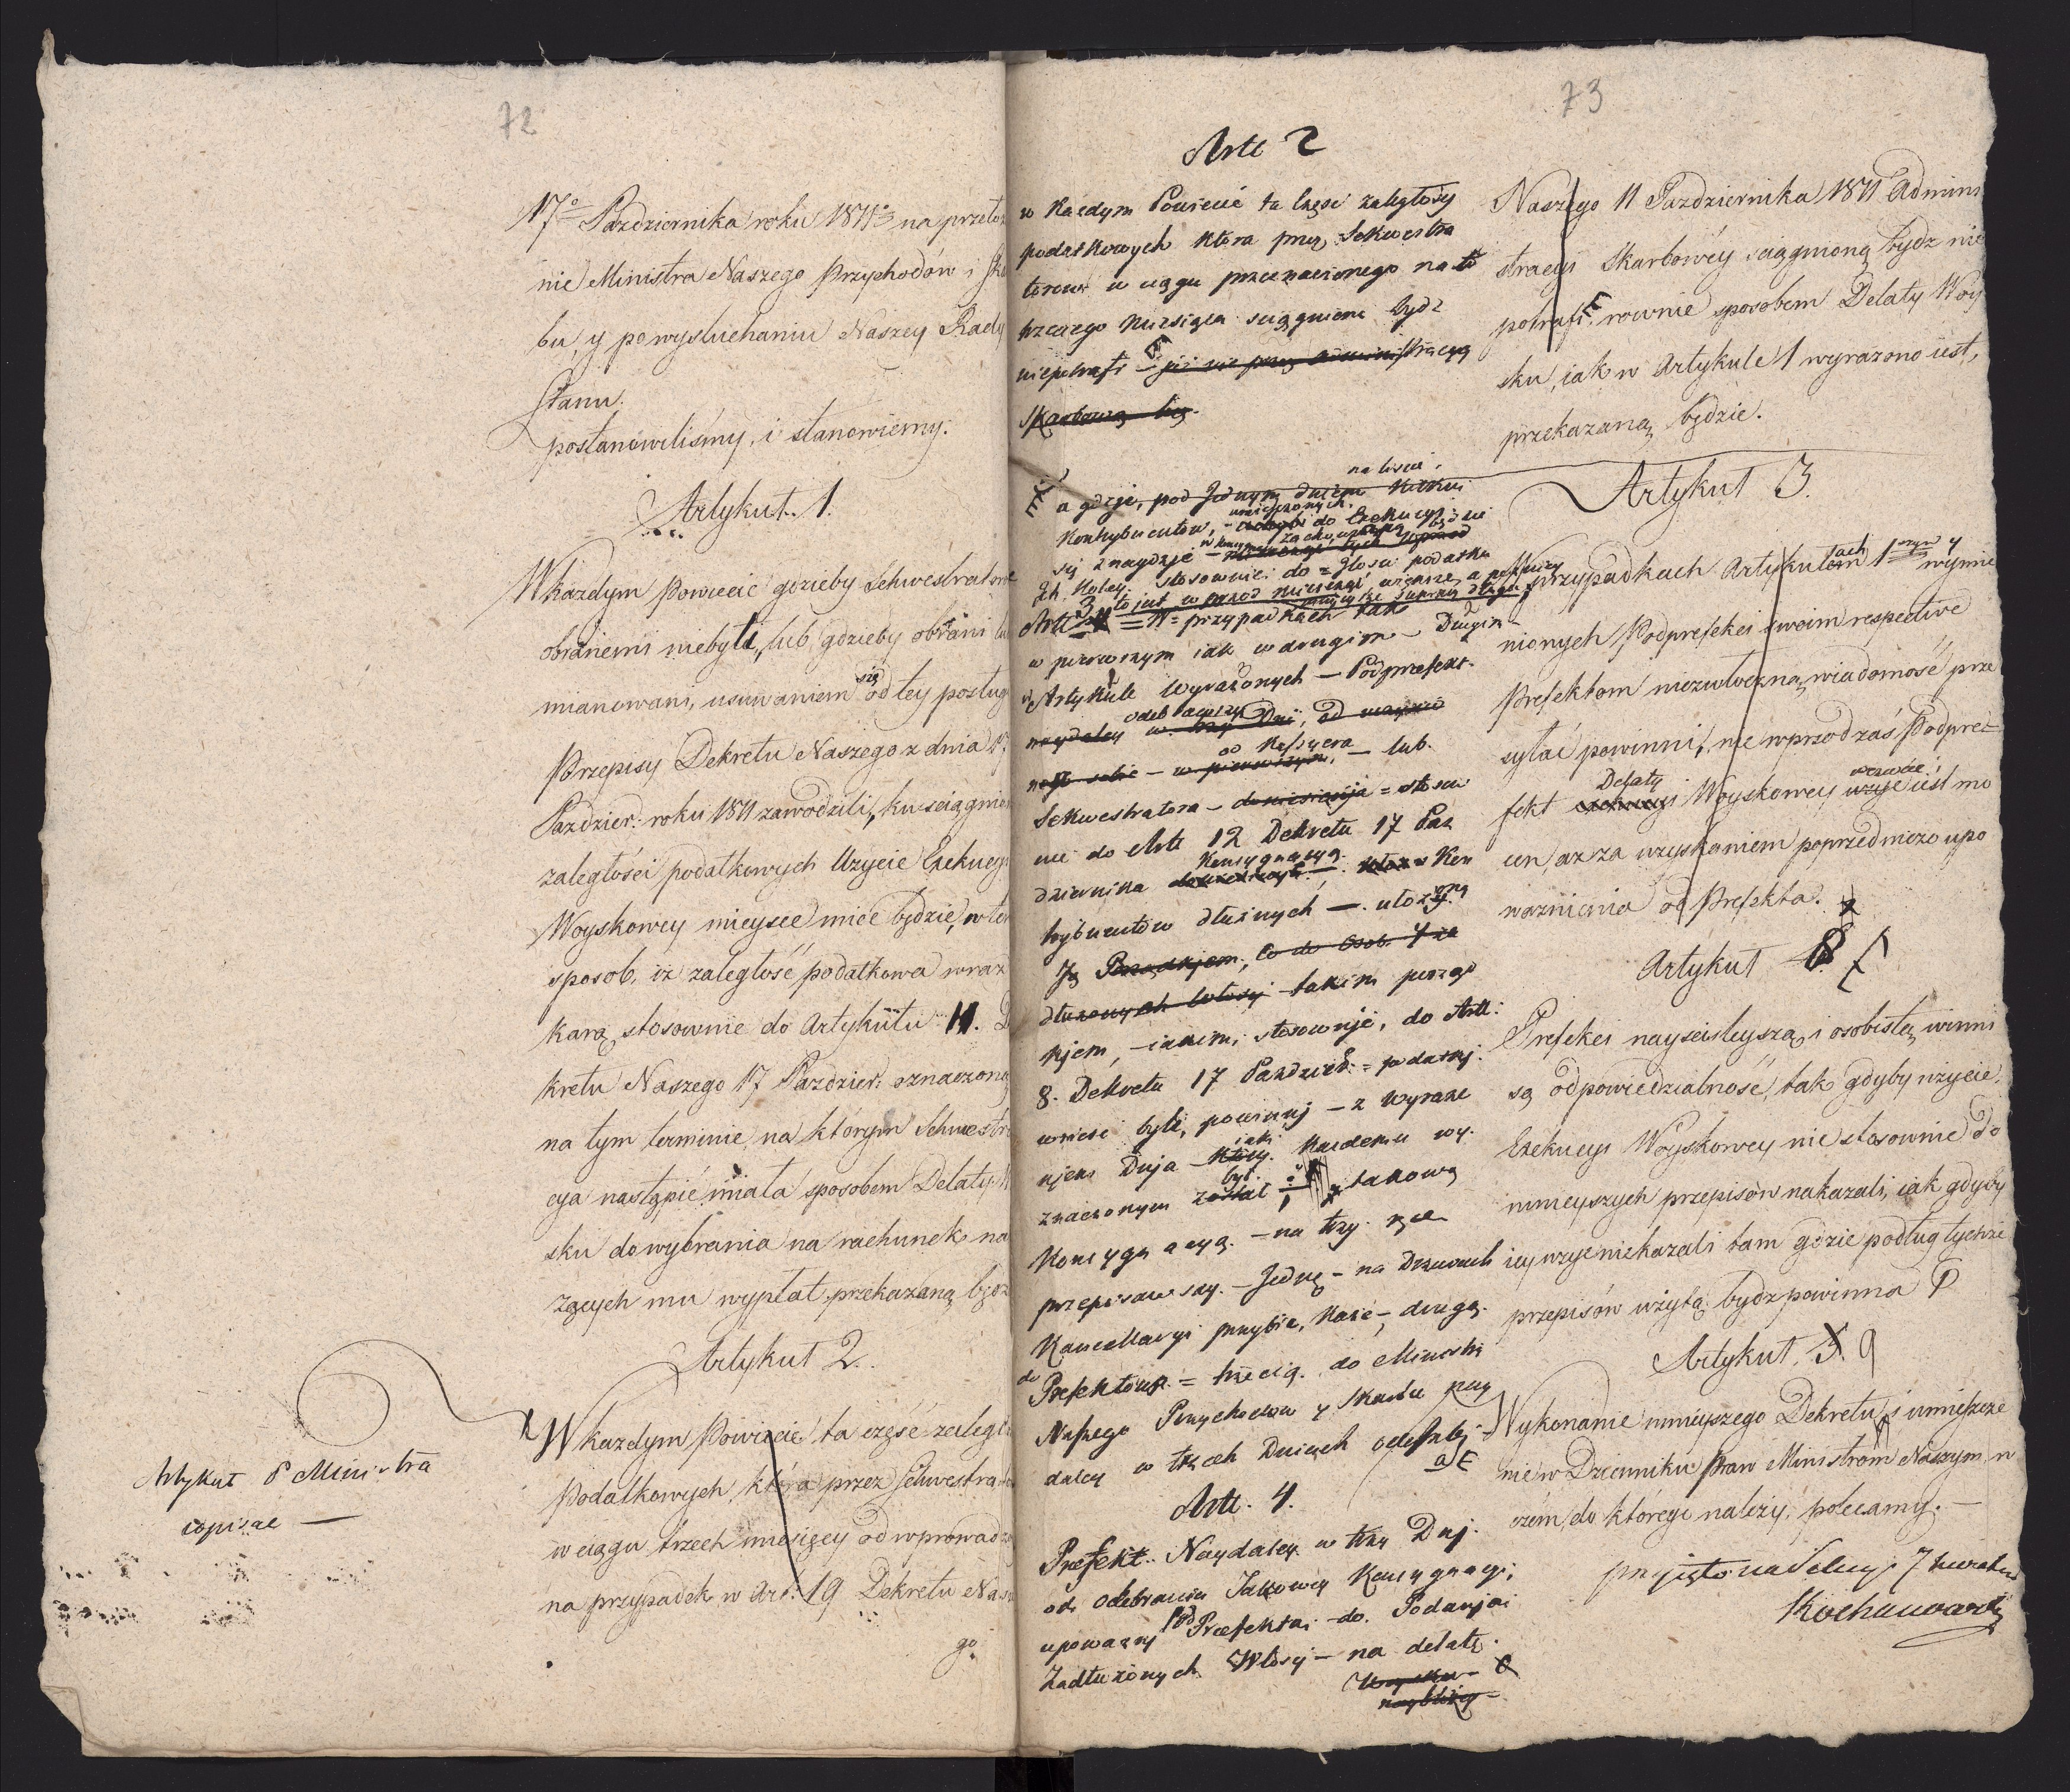 72
17º Pazdziernika roku 1811º na przeło
nie Ministra Naszego Przychodów i Ska
bu, y po wysłuchaniu Naszey Rady
Stanu.
postanowiliśmy, i stanowiemy.
Artykuł 1.
W każdym Powiecie gdzieby Sekwestratorowie
obranemi niebyli, lub gdzieby obrani lu
mianowani, usuwaniem się od tey posług
Przepisy Dekretu Naszego z dnia 17
Pazdzier: roku 1811 zawodzili, ku sciągnie
zaległości podatkowych Użycie Exekucyi
Woyskowey mieysce mieć będzie, w ten
sposob, iż zaległość podatkowa wraz
karą, stosownie do Artykułu 11. D
kretu Naszego 17 Pazdzier: oznaczoną
na tym terminie na którym Sekwestra
cya nastąpić miała sposobem Delaty W
sku do wybrania na rachunek na
zących mu wypłat, przekazaną będz
Artykuł 2.
W kazdym Powiecie ta część zaleg
Podatkowych, która przez Sekwestra
w ciągu trzech miesięcy od wprowadz
na przypadek w Art: 19 Dekretu Nasz
go
Artykuł P Ministra
wpisać —
73
Artt 2
w Kazdym Powiecie ta Częsc zaległosy
podatkowych ktora przez Sekwestra
torow w ciągu przeznaczonego na to
trzeciego Miesiąca sciągniona bydz
niepotrafi
Skarbową
na liscie
a gdzje, pod Jednym dniem Kilku
Kontrybuentow, umieszczonych do Exekucyi
się znaydzje
Jch Koley. stosownie do głosu podatku
Artt 3 W przypadkach tak
w pierwszym iak w drugim
Artykule Wyrażonych — Podprefekt
naydaley odebrawszy
od Kassyera — lub.
Sekwestratora — doniesienja = stosow
nie do Artt 12 Dekretu 17 Paz
dziernika Konsygnacyą Kon
trybuentow dłużnych — ułożoną
takim porząd
kjem, — iakim, stosownje, do Artt:
8. Dekretu 17 Pazdzier: = podatkj
wniesc byli, powinnj — z wyraże
njem Dnja — jaki Kazdemu wy
znaczonym był takową
Konsygnacyą. — na trzy ręce
przepisawszy. — Jedną — na Drzwiach
Kancellaryi przybic, Każe —, drugą.
do Prefektów = trzecią. do Ministra
Naszego Przychodow y Skarbu nay
daley w trzech Dniach odeszle
Artt. 4.
Prefekt. Naydaley w trzy Dnj.
od odebrania Takowey Konsygnacyi,
upowazni Pod Prefekta, — do. Podanja
Zadłużonych Włosci — na delatę.
Woysku
naybliżey
Naszego 11 Pazdziernika 1811 Admini
stracyi Skarbowey sciągnioną bydz nie
potrafi, rownie sposobem Delaty Woy
sku, iak w Artykule 1 wyrazono iest,
przekazaną będzie.
Artykuł 3.
W przypadkach Artykułach 1 wymie
nionych Podprefekci swoim respective
Prefektom niezwłoczną wiadomość prze
syłać powinni, nie wprzod zaś Podpre=
fekt Delaty Woyskowey iest mo
cen, aż za uzyskaniem poprzedniczo upo
ważnienia od Prefekta.
Artykuł 8
Prefekci nayscisleyszą i osobistą winni
są odpowiedzialność, tak gdyby użycie
Exekucyi Woyskowey nie stosownie do
ninieyszych przepisów nakazali, iak gdyby
iey użyć niekazali tam gdzie podług tychże
przepisów użytą bydz powinna
Artykuł 9
Wykonanie ninieyszego Dekretu i umieszcze
nie w Dzienniku Praw Ministrom Naszym, w
czém do którego należy, polecamy. —
przyjęto na Sessyi 7
Kochanowski